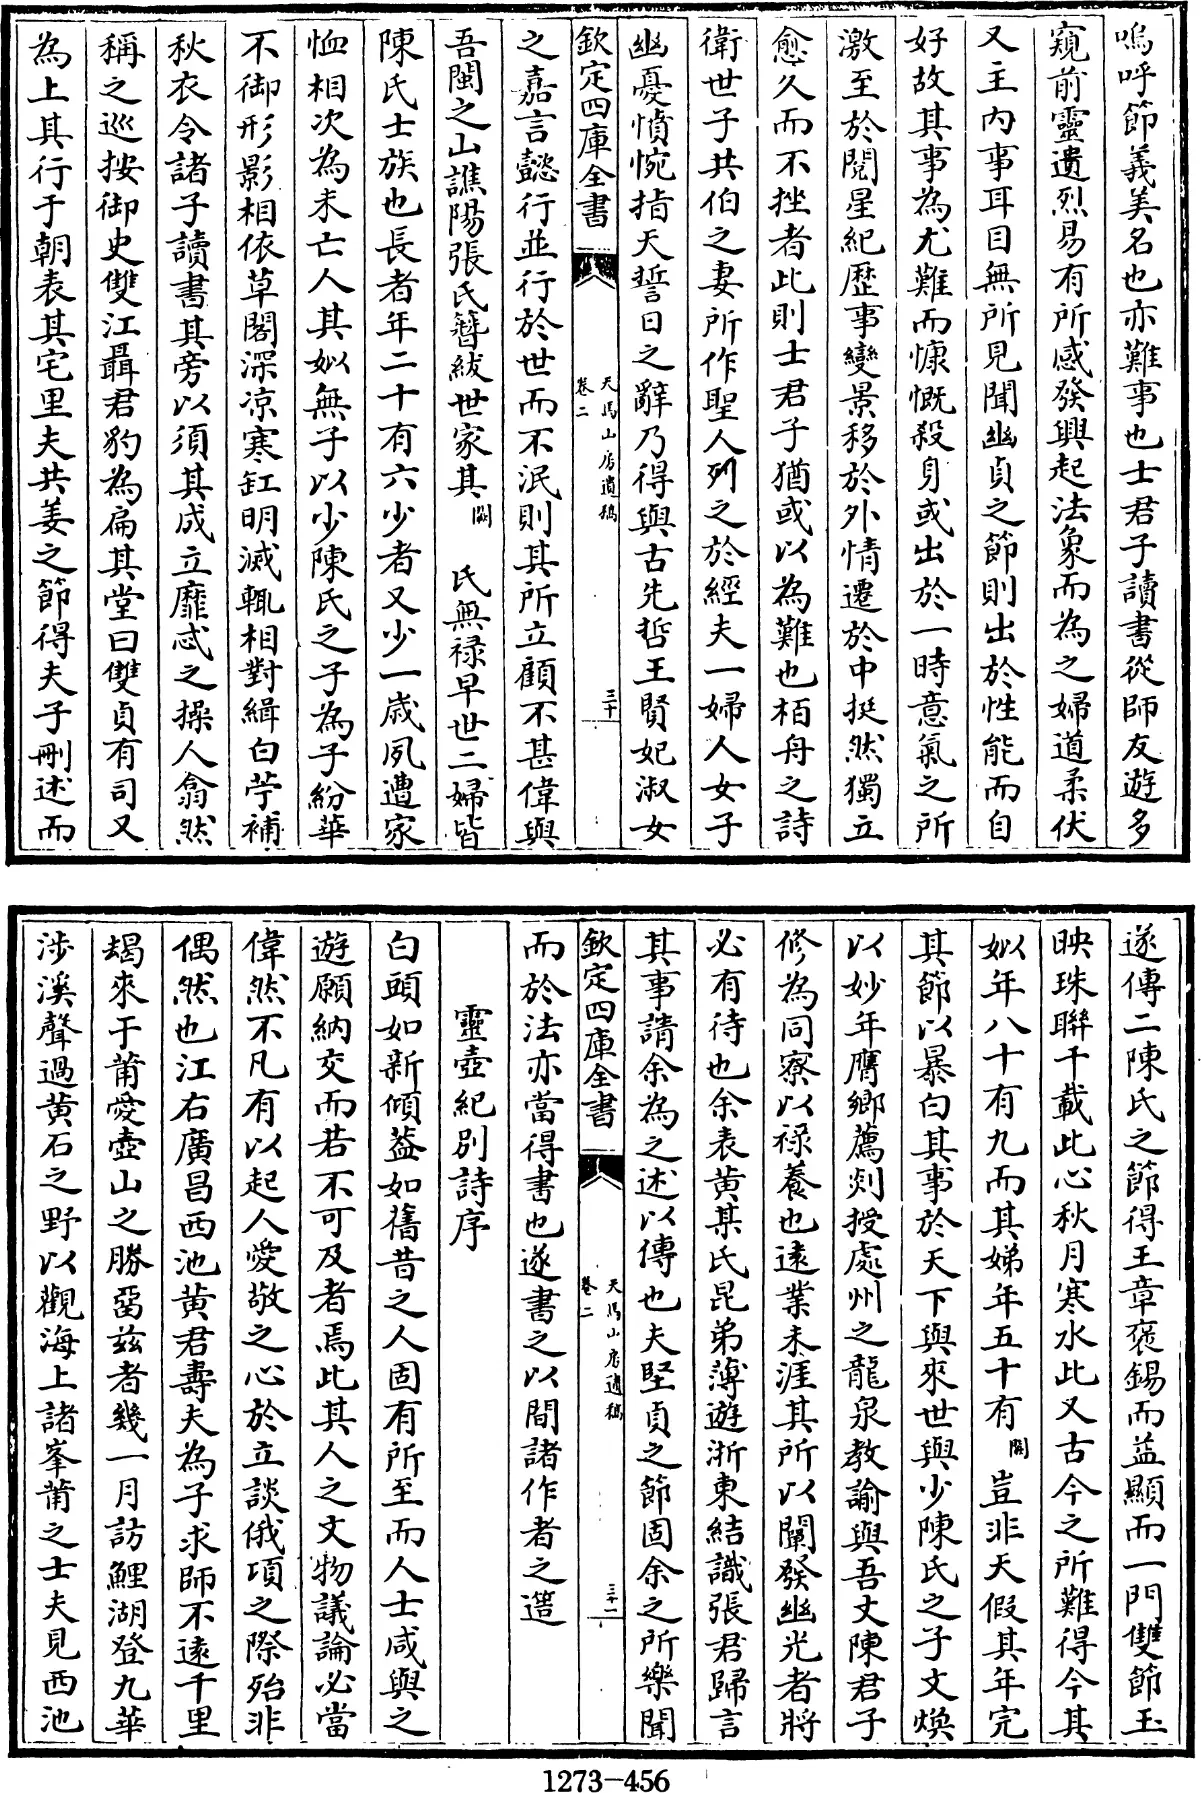 嗚呼節義美名也亦難事也士君子讀書從師友遊多
窺前靈遺烈易有所感發興起法象而為之婦道柔伏
又主内事耳目無所見聞幽貞之節則出於性能而自
好故其事為尤難而慷慨殺身或出於一時意氣之所
激至於閱星紀歷事變景移於外情遷於中挺然獨立
愈久而不挫者此則士君子猶或以為難也栢舟之詩
衛世子共伯之妻所作聖人列之於經夫一婦人女子
幽憂憤惋指天誓日之辭乃得與古先哲王賢妃淑女
欽定四庫全書
天馬山房遺稿
卷二
三十
之嘉言懿行並行於世而不泯則其所立顧不甚偉與
吾閩之山譙陽張氏簪紱世家其闕氏無禄早世二婦皆
陳氏士族也長者年二十有六少者又少一歲夙遭家
恤相次為未亡人其姒無子以少陳氏之子為子紛華
不御形影相依草閣深凉寒缸明滅輒相對緝白苧補
秋衣令諸子讀書其旁以須其成立靡忒之操人翕然
稱之巡按御史雙江聶君豹為扁其堂曰雙貞有司又
為上其行于朝表其宅里夫共姜之節得夫子刪述而
遂傳二陳氏之節得王章褒錫而益顯而一門雙節玉
映珠聯千載此心秋月寒水此又古今之所難得今其
姒年八十有九而其娣年五十有闕豈非天假其年完
其節以暴白其事於天下與來世與少陳氏之子文煥
以妙年膺鄉薦剡授處州之龍泉教諭與吾丈陳君子
修為同寮以祿養也遠業未涯其所以闡發幽光者將
必有待也余表黄某氏昆弟薄遊浙東結識張君歸言
其事請余為之述以傳也夫堅貞之節固余之所樂聞
欽定四庫全書
天馬山房遺稿
卷二
三十一
而於法亦當得書也遂書之以間諸作者之簉
靈壺紀別詩序
白頭如新傾葢如舊昔之人固有所至而人士咸與之
遊願納交而若不可及者焉此其人之文物議論必當
偉然不凡有以起人愛敬之心於立談俄項之際殆非
偶然也江右廣昌西池黄君壽夫為子求師不遠千里
朅來于莆愛壺山之勝畱兹者幾一月訪鯉湖登九華
涉溪聲過黄石之野以觀海上諸峯莆之士夫見西池
1273-456